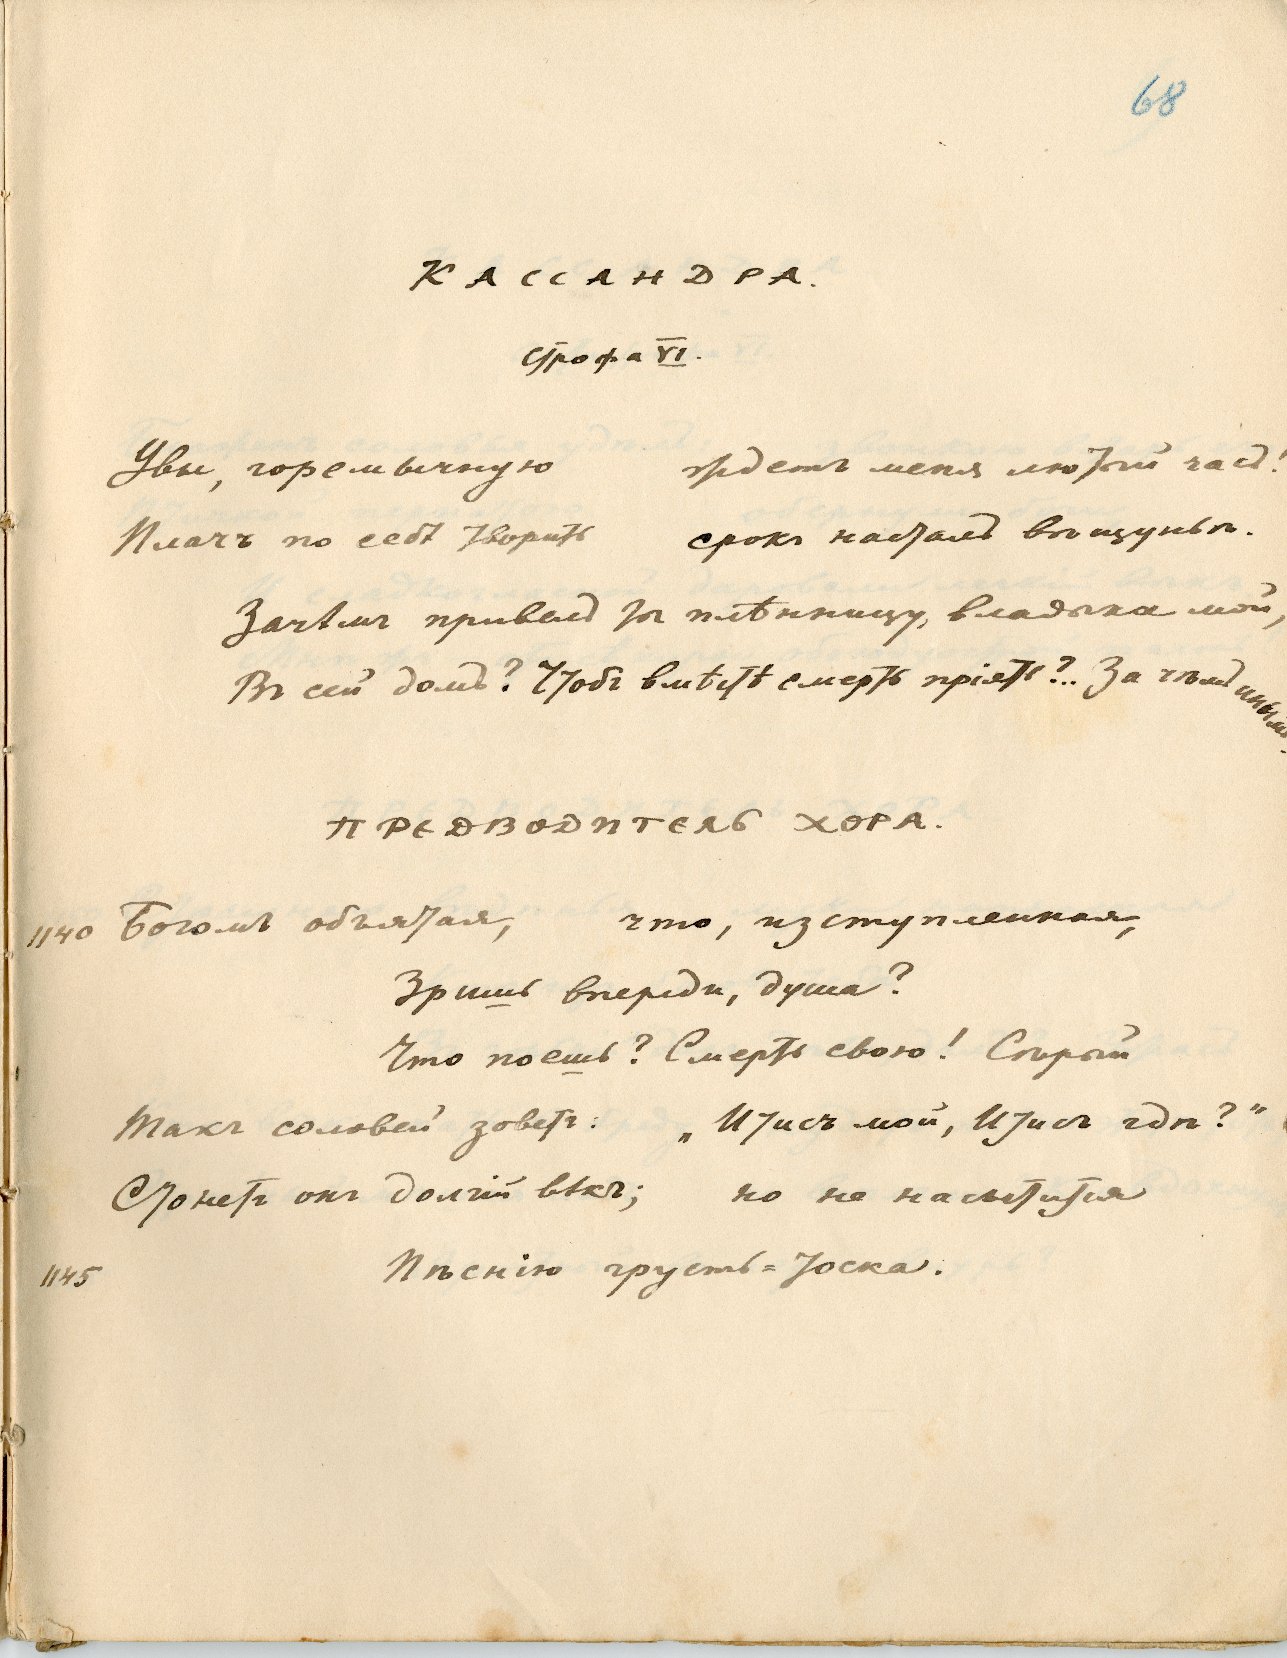 68
КАССАНДРА.
Строфа VI.
Увы, горемычную ждетъ меня лютый часъ!
Плачъ по себѣ творить срокъ насталъ вѣщуньѣ.
Зачѣмъ привелъ ты плѣнницу, владыка мой,
Въ сей домъ? Чтобъ вмѣстѣ смерть пріять?.. Зачѣмъ инымъ.
ПРЕДВОДИТЕЛЬ ХОРА.
1140 Богомъ объятая, что, изступленная,
Зришь впереди, душа?
Что поешь? Смерть свою! Сѣрый
Такъ соловей зоветъ: „Итисъ мой, Итисъ гдѣ?"
Стонетъ онъ долгій вѣкъ; но не насытится
1145 Пѣснію грусть-тоска.